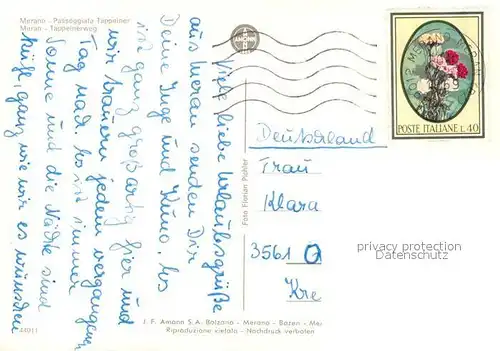 Merano - Passeggiata Tappeiner
Meran - Tappeinerweg
Viele liebe Urlaubsgrüße
aus Meran senden Dir
Deine Inge und Kuno. Es
ist ganz großartig hier und
wir trauern jedem vergangenen
Tag nach. Es ist immer
Sonne und die Nächte sind
kühl, ganz wie wir es wünschen
AMONN
POSTE ITALIANE L.40
Deutschland
Frau
Klara
3561
Kre
privacy protection
Datenschutz
Foto Florian Pichler
J. F. Amonn S.A. Bolzano - Merano - Bozen - Me
Riproduzione vietata - Nachdruck verboten
44011